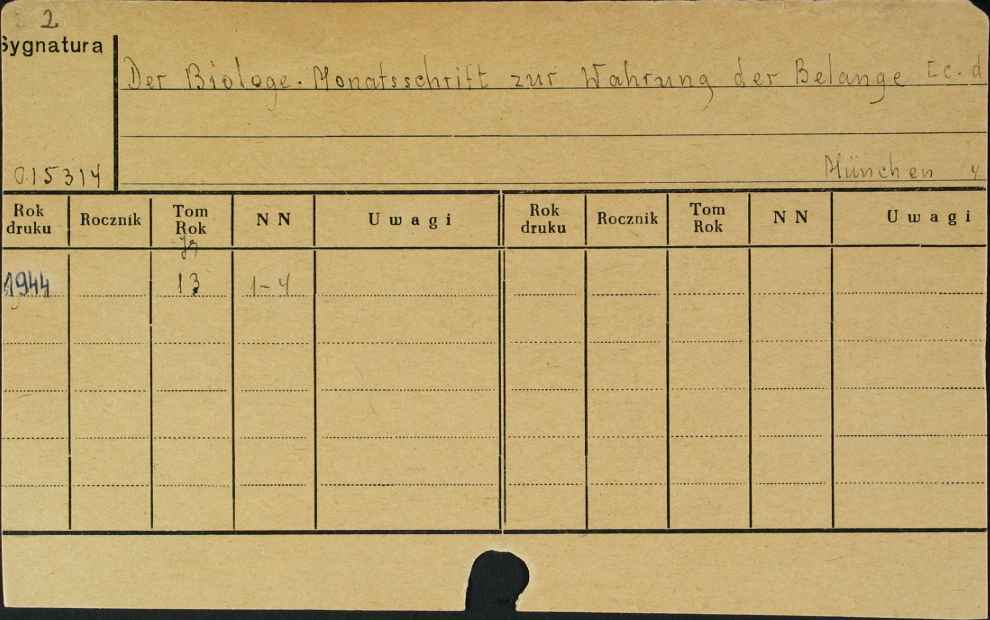 2
Sygnatura
Der Biologe. Monatsschrift zur Wahrung der Belange Ec. d
015314
München 4
Rok druku Rocznik Tom Rok NN Uwagi Rok druku Rocznik Tom Rok NN Uwagi
Jg
1944 13 1-4